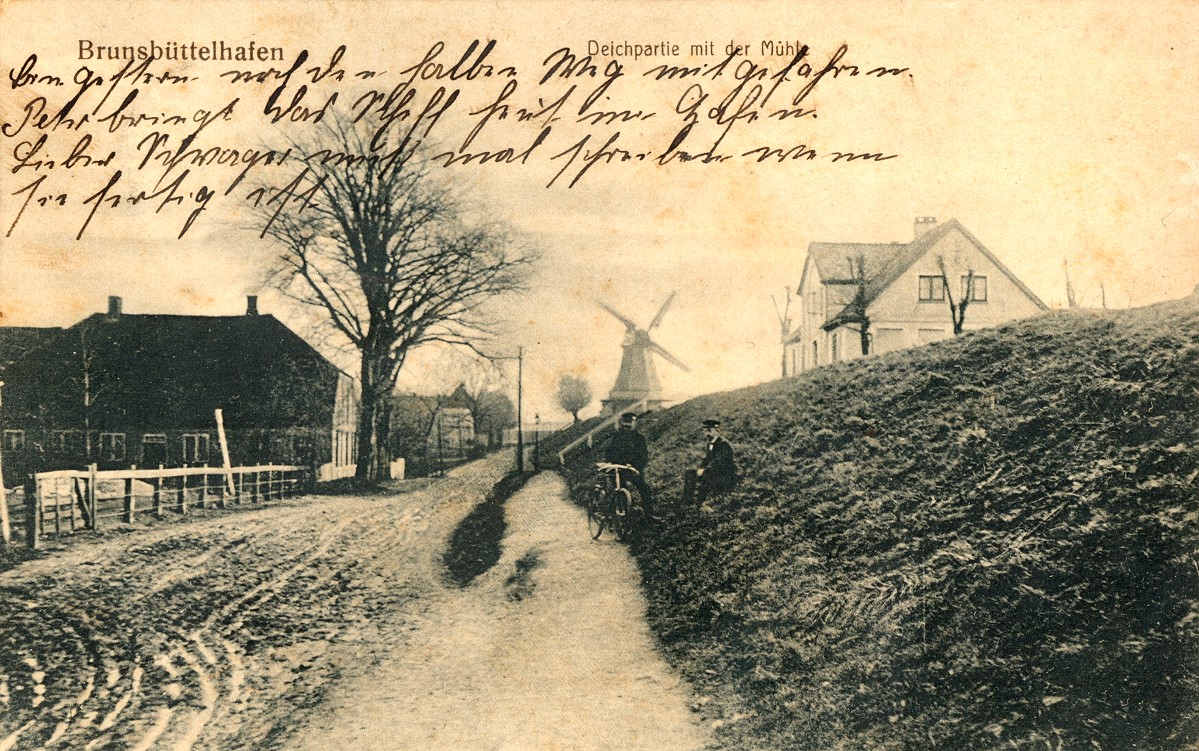 Brunsbüttelhafen
Deichpartie mit der Mühle
bin gestern noch den halben Weg mitgefahren.
Peter bringt das Schiff heut im Hafen.
Lieber Schwager muß mal schreiben wenn
sie fertig ist